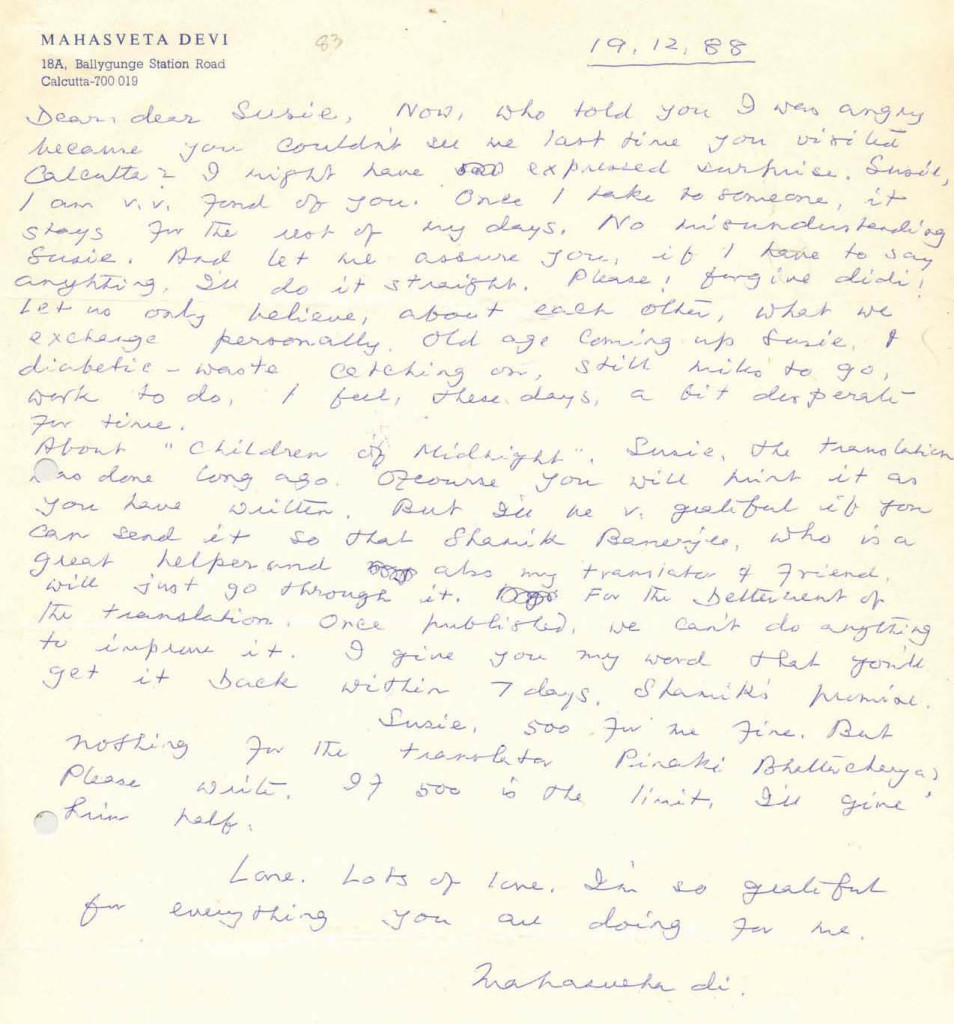 MAHASVETA DEVI
83
19.12.88
18A, Ballygunge Station Road
Calcutta-700 019
Dear, dear Susie, Now, who told you I was angry
because you couldn't see me last time you visited
Calcutta? I might have expressed surprise. Susie,
I am v.v. fond of you. Once I take to someone, it
stays for the rest of my days. No misunderstanding
Susie. And let me assure you, if I have to say
anything, I'll do it straight. Please! forgive didi!
Let us only believe, about each other, what we
exchange personally. Old age coming up Susie, &
diabetic-waste catching on, still miles to go,
work to do, I feel, these days, a bit desperate
for time.
About "Children of Midnight". Susie, the translation
was done long ago. Ofcourse you will print it as
you have written. But I'll be v. grateful if you
can send it so that Shamik Banerjee, who is a
great helper and also my translator & friend,
will just go through it. For the betterment of
the translation. Once published, we can't do anything
to improve it. I give you my word that you'll
get it back within 7 days. Shamik's promise.
Susie, 500 for me fine. But
nothing for the translator Pinaki Bhattacharya?
Please write. If 500 is the limit, I'll give
him half.
Love. Lots of love. I'm so grateful
for everything you are doing for me.
Mahasveta di.